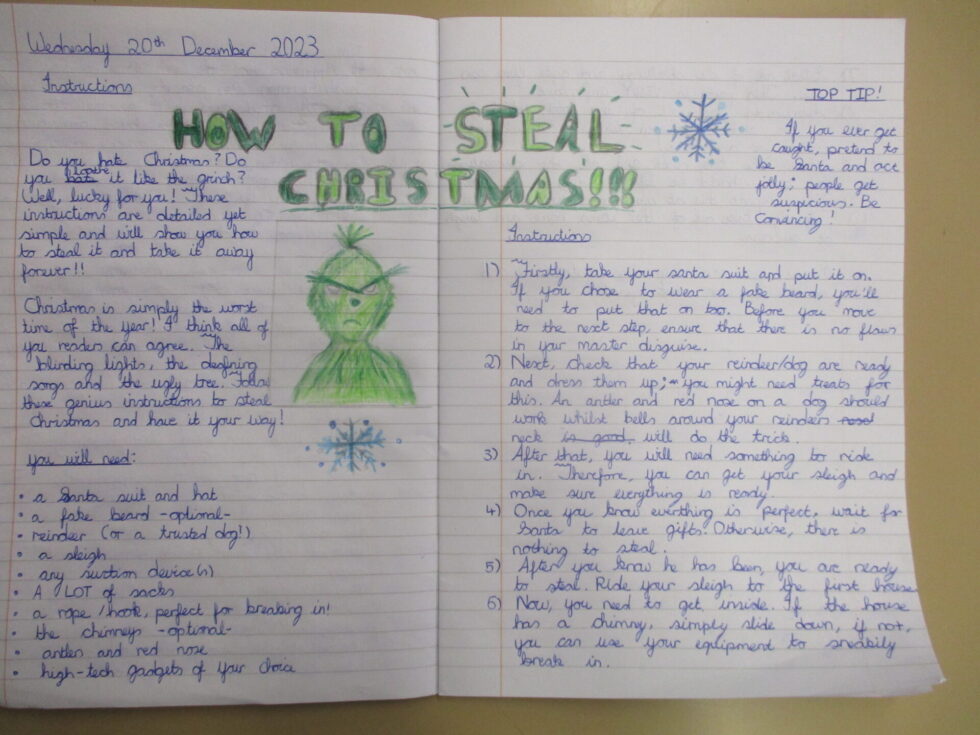 Wednesday 20th December 2023
Instructions
HOW TO STEAL
CHRISTMAS!!!
Do you hate Christmas? Do
you loathe it like the grinch?
Well, lucky for you! These
instructions are detailed yet
simple and will show you how
to steal it and take it away
forever!!
Christmas is simply the worst
time of the year! I think all of
you readers can agree. The
blinding lights, the deafning
songs and the ugly tree. Follow
these genius instructions to steal
Christmas and have it your way!
you will need:
• a Santa suit and hat
• a fake beard -optional-
• reindeer (or a trusted dog!)
• a sleigh
• any suction device(s)
• A LOT of sacks
• a rope /hook, perfect for breaking in!
• the chimneys -optional-
• antler and red nose
• high-tech gadgets of your choice
TOP TIP!
If you ever get
caught, pretend to
be Santa and act
jolly; people get
suspicious. Be
Convincing!
Instructions
1) Firstly, take your santa suit and put it on.
If you chose to wear a fake beard, you'll
need to put that on too. Before you move
to the next step, ensure that there is no flaws
in your master disguise.
2) Next, check that your reindeer/dog are ready
and dress them up; you might need treats for
this. An antler and red nose on a dog should
work whilst bells around your reinders nose
neck is good, will do the trick.
3) After that, you will need something to ride
in. Therefore, you can get your sleigh and
make sure everything is ready.
4) Once you know everthing is perfect, wait for
Santa to leave gifts. Otherwise, there is
nothing to steal.
5) After you know he has been, you are ready
to steal. Ride your sleigh to the first house
6) Now, you need to get inside. If the house
has a chimny, simply slide down, if not,
you can use your equipment to sneakily
break in.